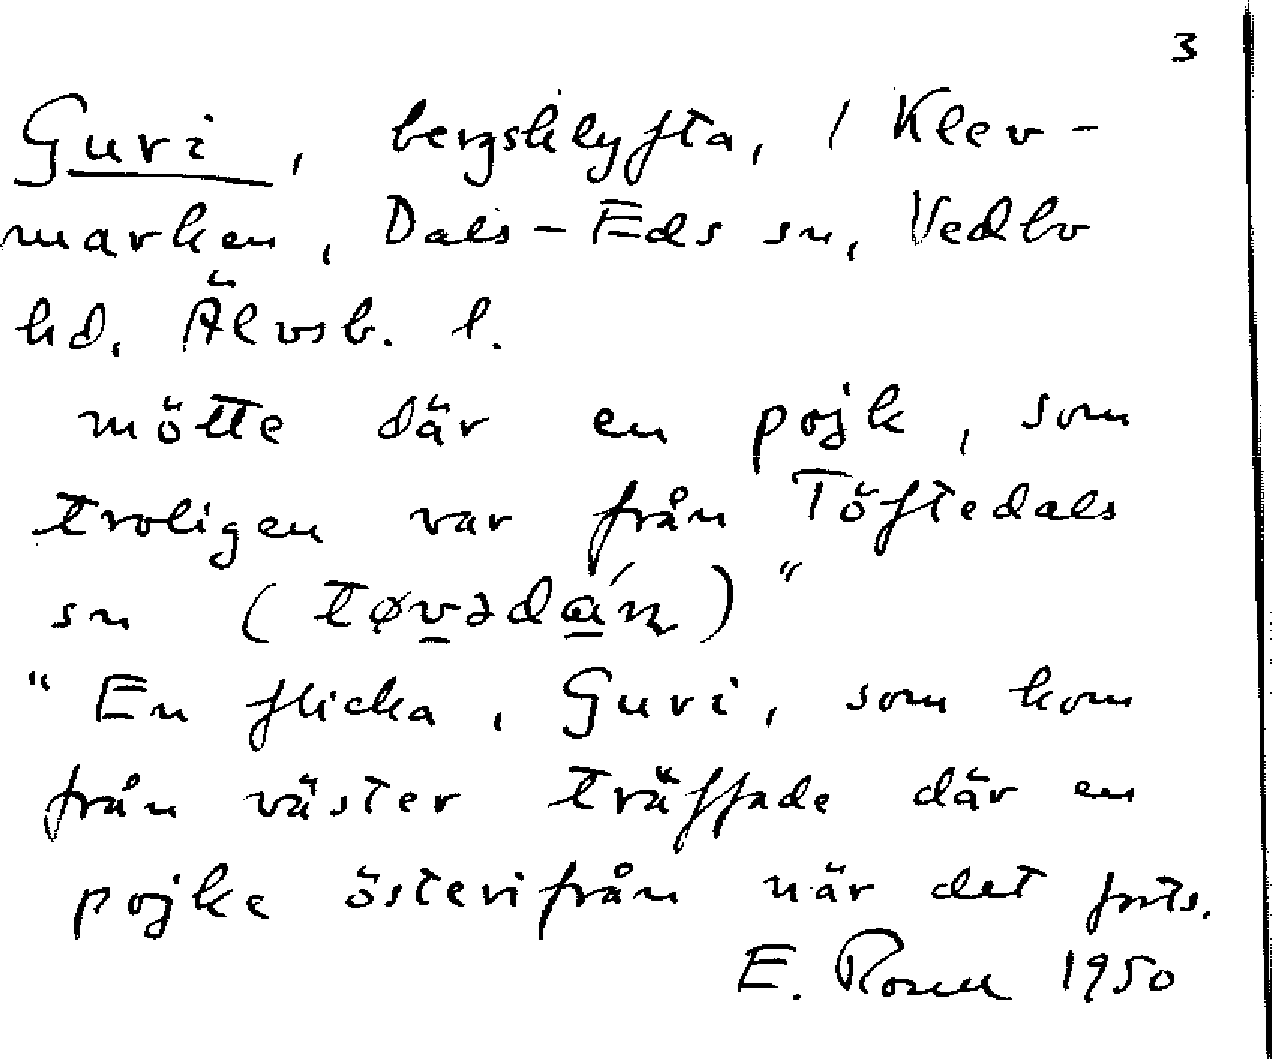 3
Guri, bergsklyfta, i Klev-
marken, Dals-Eds sn, Vedbo
hd, Älvsb. l.
mötte där en pojk, som
troligen var från Töftedals
sn (tøvədáɳ)"
"En flicka, Guri, som kom
från väster träffade där en
pojke österifrån när det forts.
E. Rosén 1950